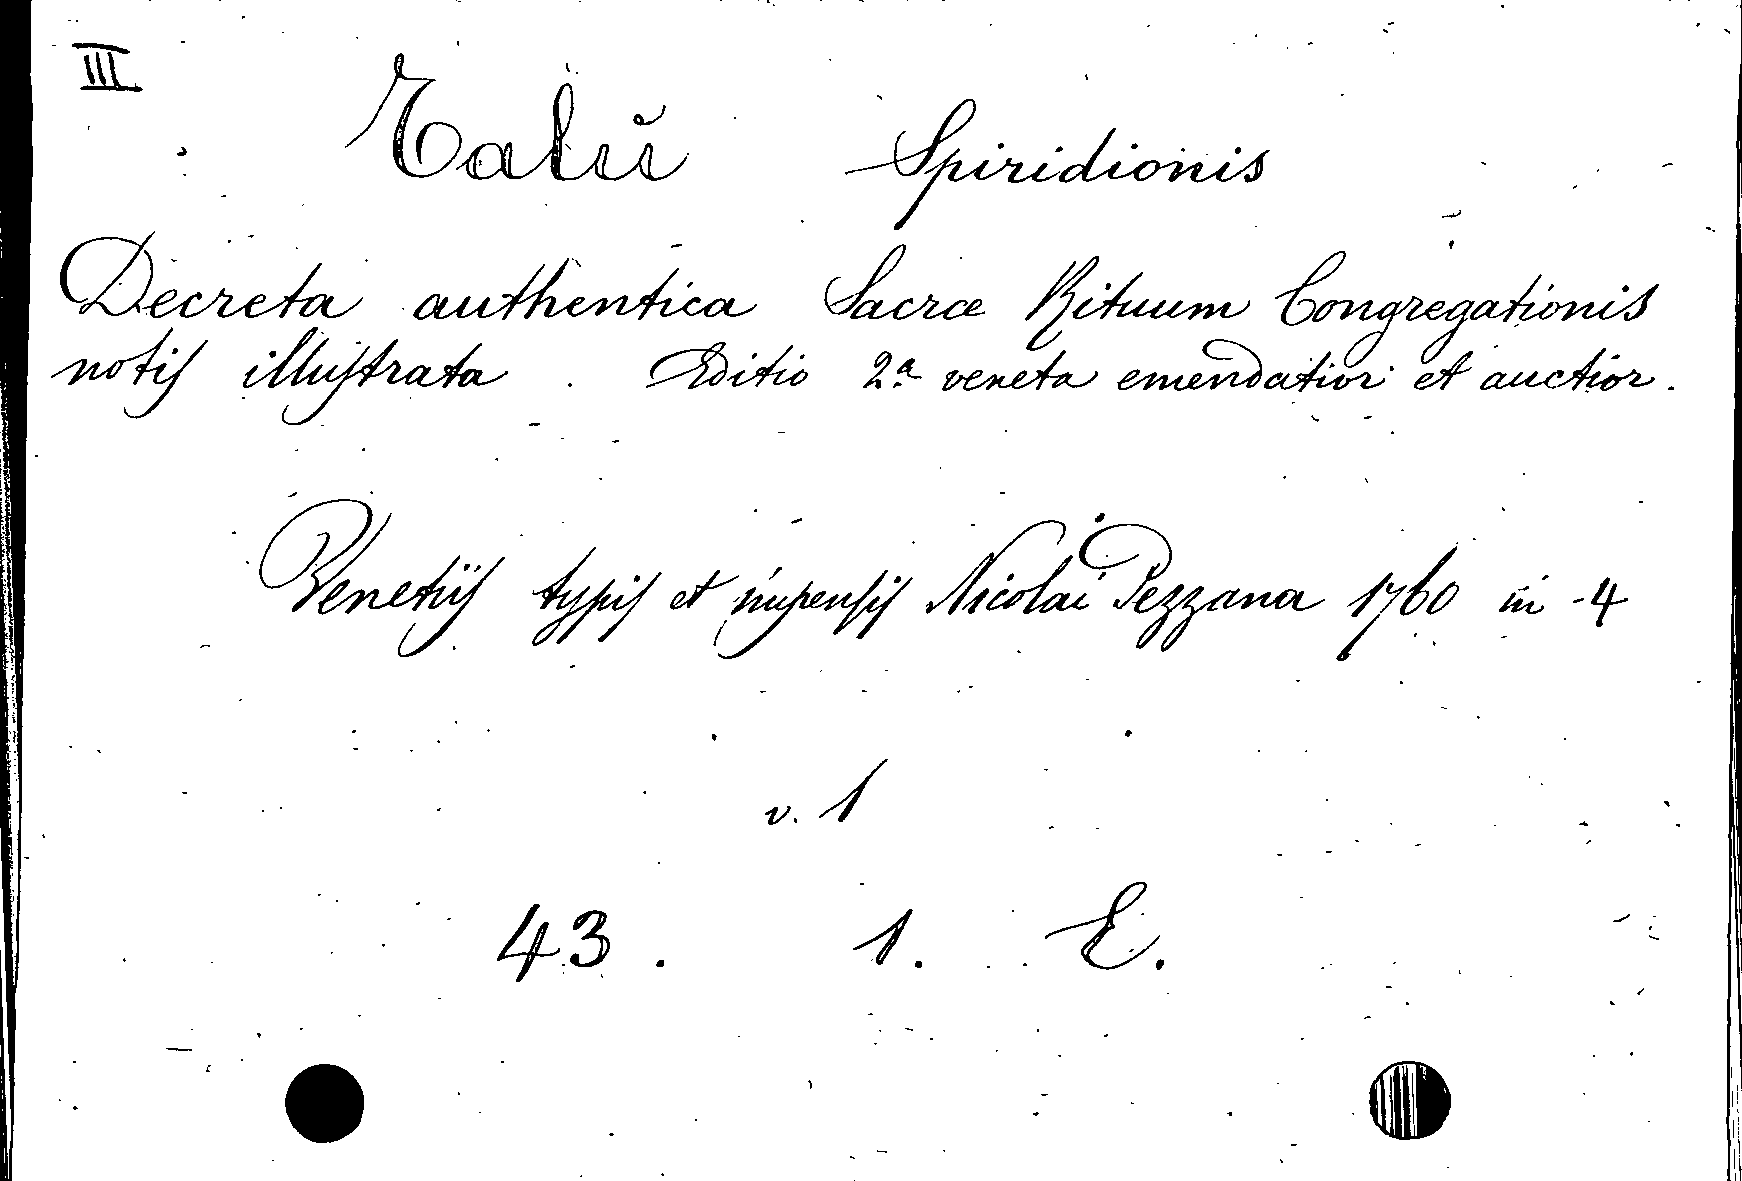 III
Talù Spiridionis
Decreta authentica Sacræ Rituum Congregationis
notis illustrata . Editio 2ª veneta emendatior et auctior.
Venetiis typis et impensis Nicolai Pezzana 1760 in-4
v. 1
43. 1. E.